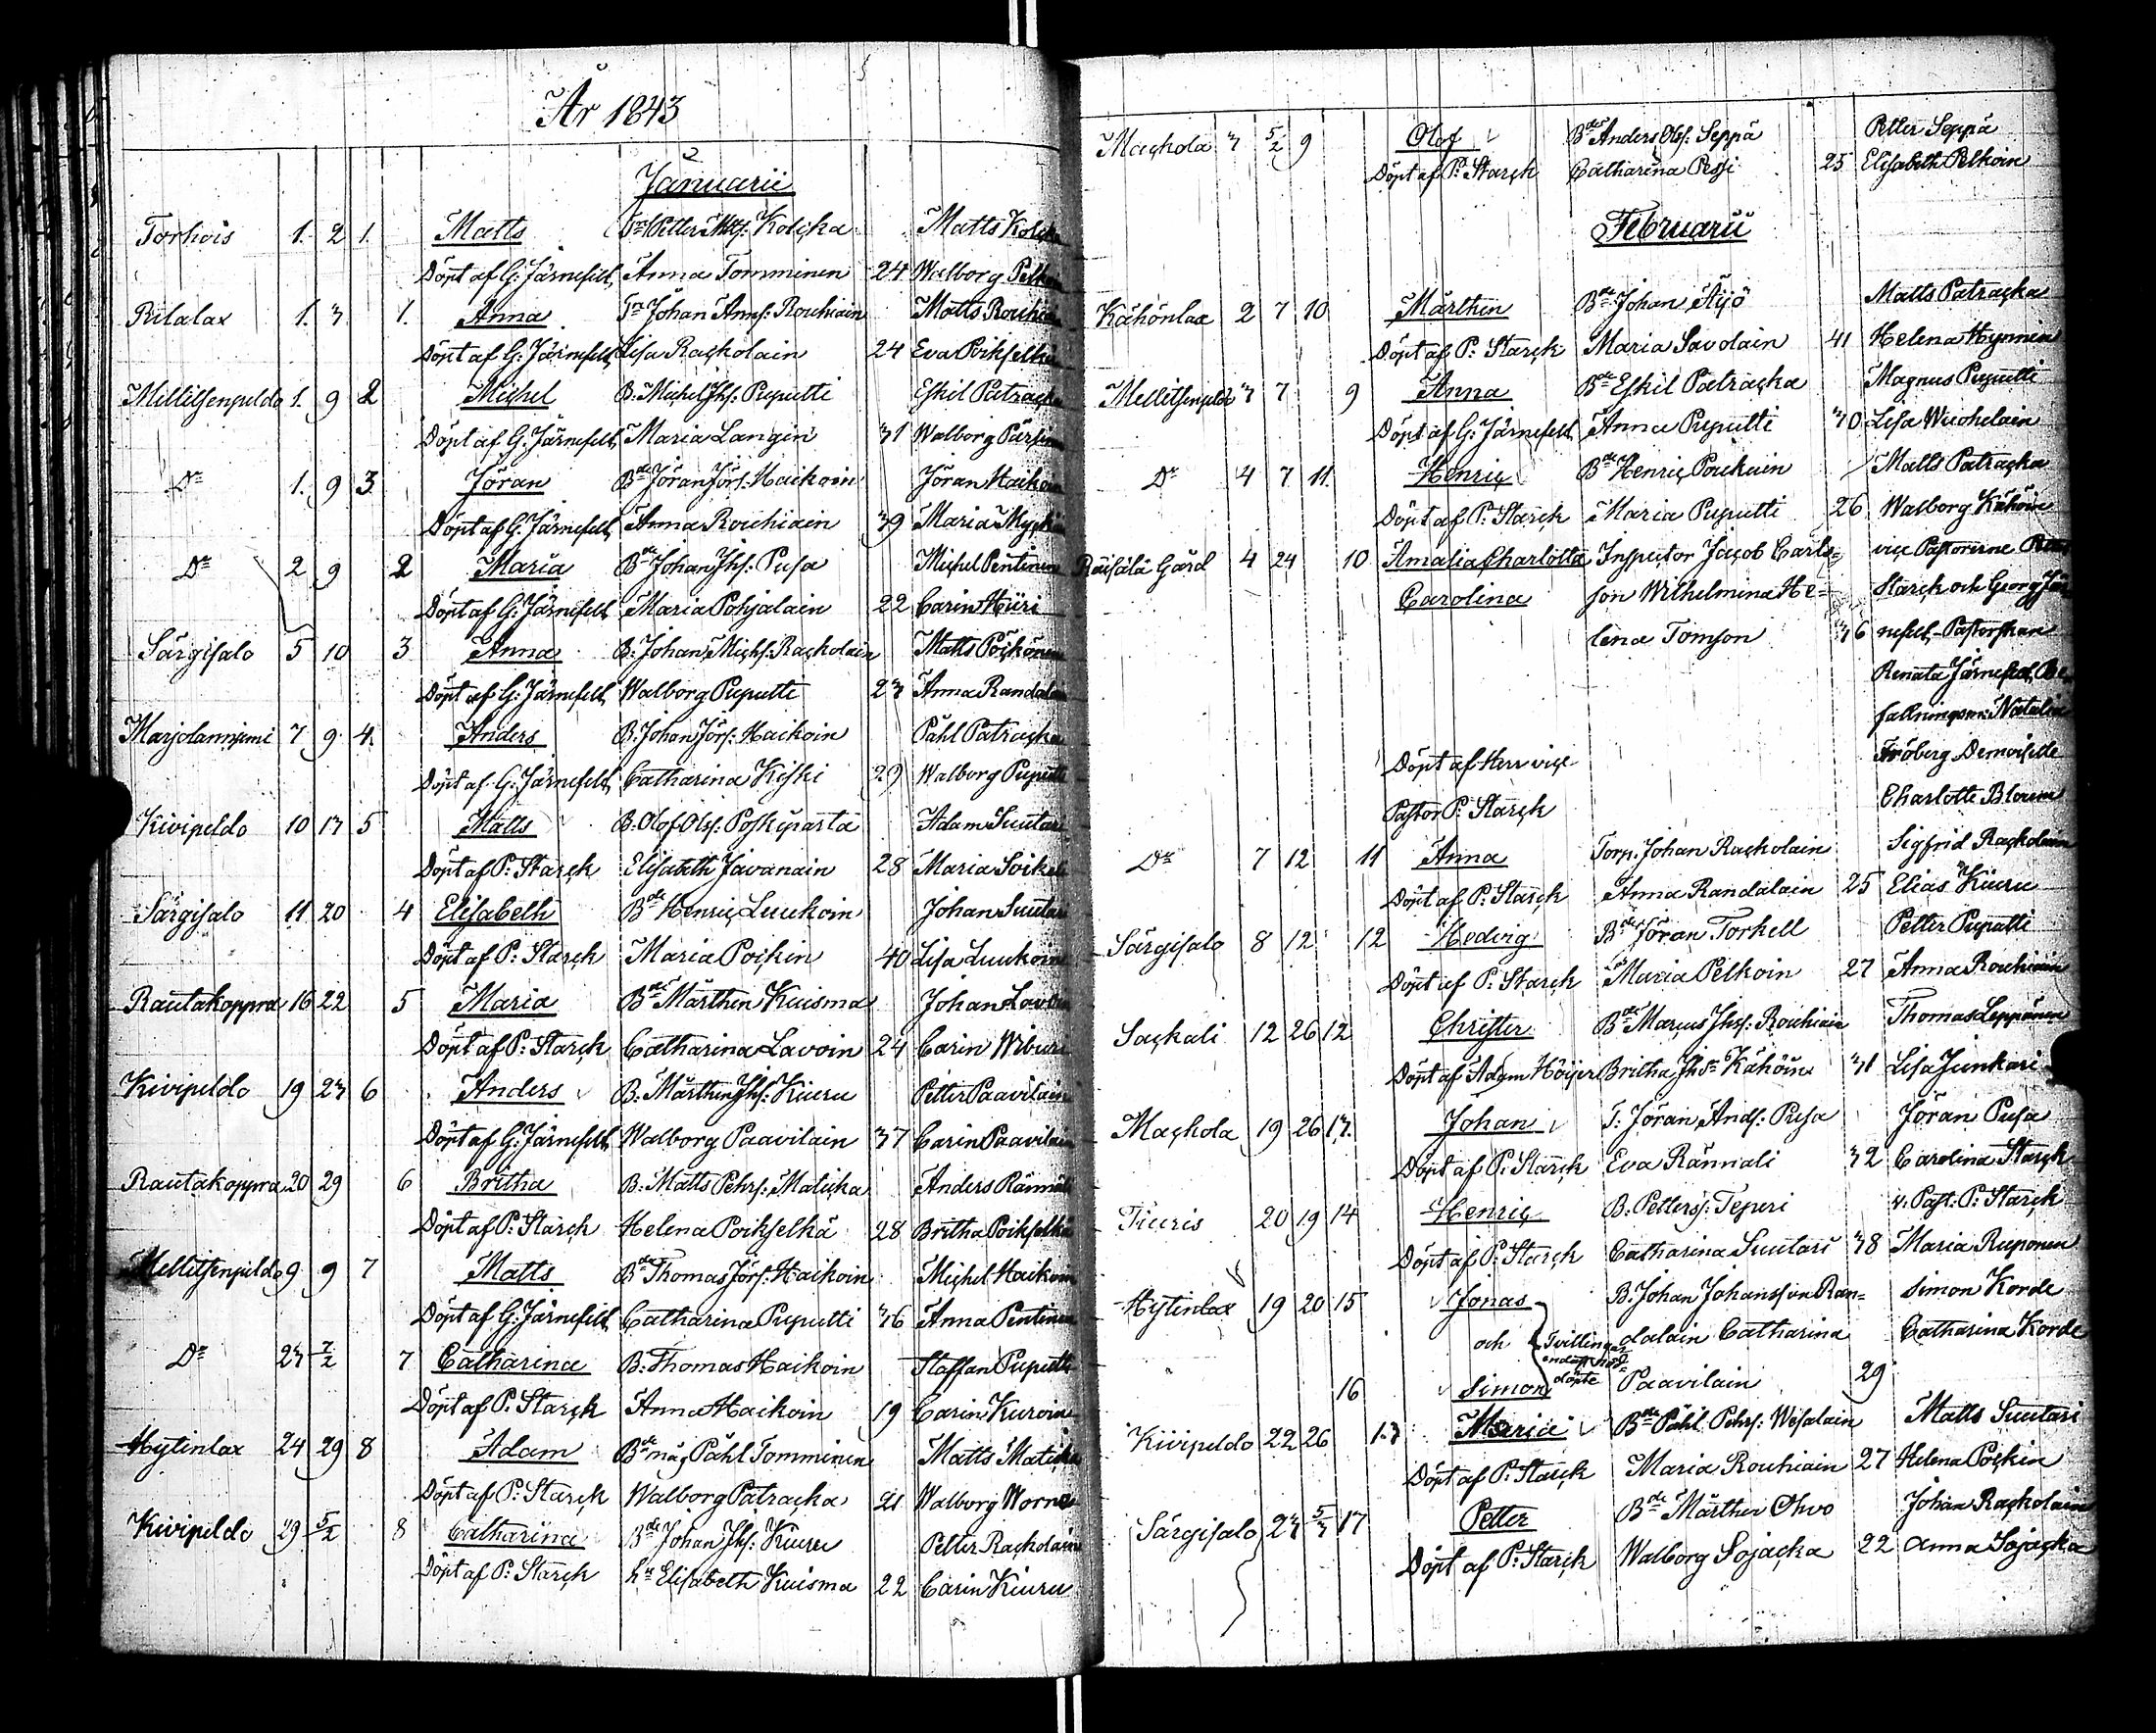 År 1843
Januarii
Torhois 1. 2 1. Matts Petter Matts: Kolcka Matts Kolcka
Döpt af G: Järnefelt, Anna Tomminen 24 Walborg
Rilalax 1. 3 1. Anna Johan Ands: Rouhiain Matts
Döpt af G: Järnefelt, Lisa Rackolain 24 Eva
Mellitsenpeldo 1. 9 2 Michel B: Michel Jhs: Puputti Eskil Patracka
Döpt af G: Järnefelt, Maria Langin 31 Walborg
Do 1. 9 3 Jöran Bde Jöran Jörs: Haikoin Jöran Haikoin
Döpt af G: Järnefelt, Anna Rouhiain 39 Maria
Do 2 9 2 Maria Bde Johan Jhs: Pusa Michel Pentinen
Döpt af G: Järnefelt, Maria Pohjalain 22 Carin Hiiri
Särgisalo 5 10 3 Anna B: Johan Michs: Rackolain Matts Pöckönen
Döpt af G: Järnefelt, Walborg Puputti 23 Anna
Marjolanniemi 7 9 4. Anders B: Johan Jörs: Haikoin Påhl Patracka
Döpt af G: Järnefelt, Catharina Kiski 29 Walborg Puputti
Kivipeldo 10 13 5 Matts B: Olof Ols: Poskiparta Adam Suutari
Döpt af P: Starck Elisabeth Javanain 28 Maria
Särgisalo 11 20 4 Elisabeth Bde Henric Luukoin Johan Suutari
Döpt af P: Starck Maria Poikin 40 Lisa Luukoin
Rautakoppra 16 22 5 Maria Bde Mårthen Kuisma Johan
Döpt af P: Starck Catharina Lavoin 24 Carin Wiburi
Kivipeldo 19 23 6 Anders B: Mårthen Jhs: Kiuru Petter Paavilain
Döpt af G: Järnefelt, Walborg Paavilain 37 Carin Paavilain
Rautakoppra 20 29 6 Britha B: Matts Pehrs: Maticka Anders Rännäli
Döpt af P: Starck Helena Poikselkä 28 Britha Poikselkä
Mellitsenpeldo 9 9 7 Matts Bde Thomas Jörs: Haikoin Michel Haikoin
Döpt af G: Järnefelt, Catharina Puputti 36 Anna Pentinen
Do 23 2/2 7 Catharina B: Thomas Haikoin Staffan Puputti
Döpt af P: Starck Anna Haikoin 19 Carin Kuroin
Hytinlax 24 29 8 Adam Bde måg Påhl Tomminen Matts
Döpt af P: Starck Walborg Patracka 21 Walborg
Kivipeldo 29 5/2 8 Catharina Bde Johan Jhs: Kiuru Petter Rackolain
Döpt af P: Starck Elisabeth Kuisma 22 Carin Kiuru
Mackola 3 5/2 9 Olof Bde Anders Ols: Seppä Petter Seppä
Döpt af P: Starck Catharina Pessi 25 Elisabeth Pelkoin
Februarii
Kähönlax 2 7 10 Mårthen Bde Johan Äijö Matts Patracka
Döpt af P: Starck Maria Savolain 41 Helena Hynninen
Mellitsenpeldo 3 7 9 Anna Bde Eskil Patracka Magnus Puputti
Döpt af G: Järnefelt, Anna Puputti 30 Lisa Wuohelain
Do 4 7 11. Henric Bde Henric Poukuin Matts Patracka
Döpt af P: Starck Maria Puputti 26 Walborg Kähöin
Räisälä Gård 4 24 10 Amalia Charlotta Inspector Jacob Carls- vice Pastorerne
Carolina son Wilhelmina He- Starck och Georg Jär
lena Tomson 36 nefelt Pastorskan
Renata Järnefelt, Be
fallningsm: Natalia
Döpt af Herr vice Fröberg Demoiselle
Pastor P: Starck Charlotte Blom
Do 7 12 11 Anna Torp. Johan Rackolain Sigfrid Rackolain
Döpt af P: Starck Anna Randalain 25 Elias Kiuru
Särgisalo 8 12 12 Hedvig Bde Jöran Torkell Petter Puputti
Döpt af P: Starck Maria Pelkoin 27 Anna Rouhiain
Sackali 12 26 12 Christer Bde Marcus Jhs: Rouhiain Thomas Leppänen
Döpt af Adam Höijer Britha Kähöin 31 Lisa Junkari
Mackola 19 26 13. Johan T: Jöran Ands: Pusa Jöran Pusa
Döpt af P: Starck Eva Rännäli 32 Carolina Starck
Tiuris 20 19 14 Henric B: Petters: Teperi v. Past: P: Starck
Döpt af P: Starck Catharina Suutari 38 Maria Ruponen
Hytinlax 19 20 15 Jonas B: Johan Johansson Ran- Simon Korde
och Tvillingar dalain Catharina Catharina Korde
16 Simon döpte Paavilain 29
Kivipeldo 22 26 13 Maria Bde Påhl Pehrs: Wesalain Matts Suutari
Döpt af P: Starck Maria Rouhiain 27 Helena Pöckin
Särgisalo 23 5/3 17 Petter Bde Mårthen Ohvo Johan Rackolain
Döpt af P: Starck Walborg Sojacka 22 Anna Sojacka